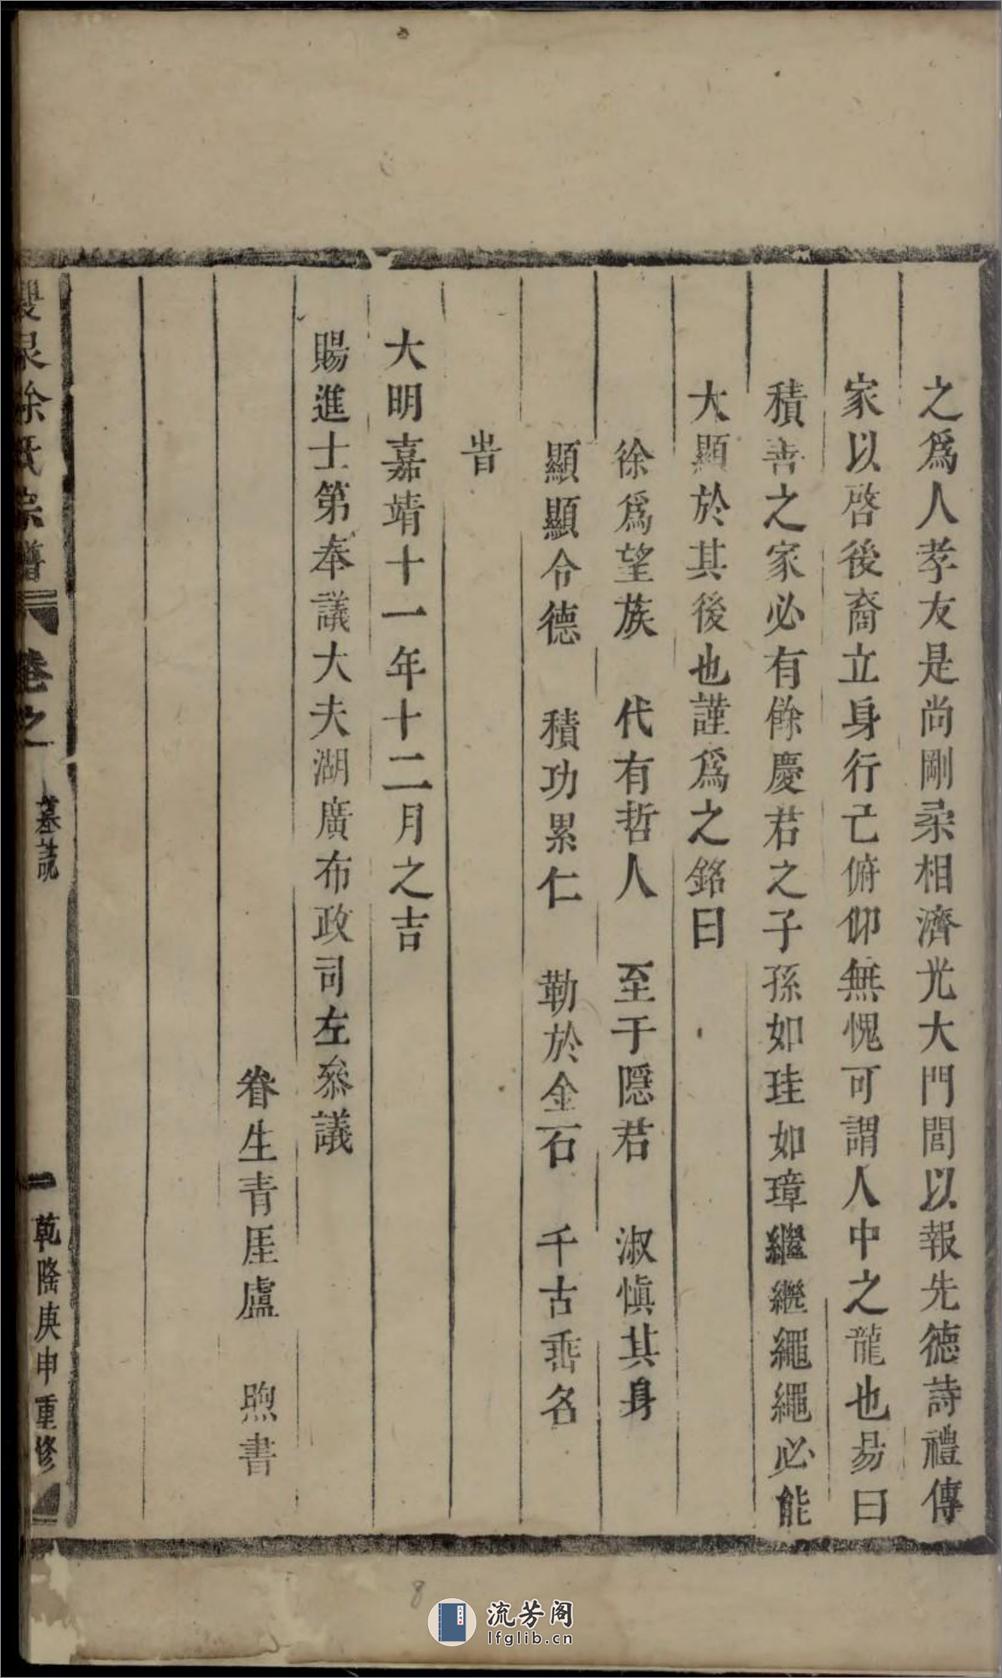 之爲人孝友是尚剛柔相濟光大門閭以報先德詩禮傳
家以啓後裔立身行己俯仰無愧可謂人中之龍也易曰
積善之家必有餘慶君之子孫如珪如璋繼繼繩繩必能
大顯於其後也謹爲之銘曰
徐爲望族　代有哲人　至于隱君　淑慎其身
顯顯令德　積功累仁　勒於金石　千古垂名
旹
大明嘉靖十一年十二月之吉
賜進士第奉議大夫湖廣布政司左叅議
眷生青厓盧　煦書
徐氏宗譜　卷之　墓誌　一　乾隆庚申重修
8
流芳阁
lfglib.cn